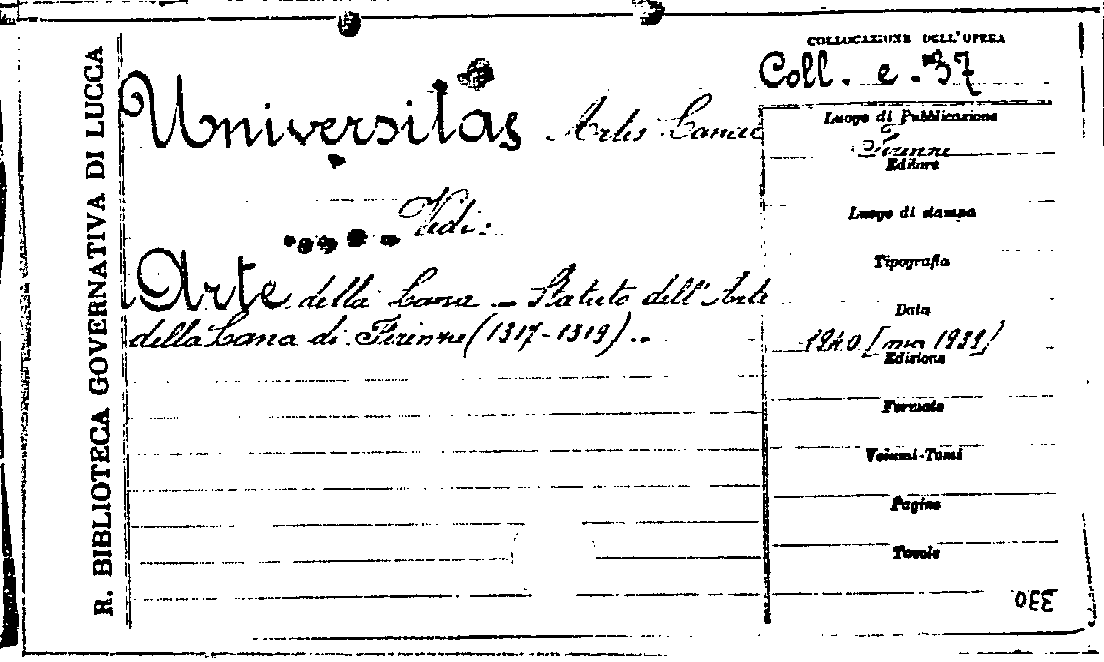 R. BIBLIOTECA GOVERNATIVA DI LUCCA
COLLOCAZIONE DELL'OPERA
Coll. e. 37
Universitas Artis Lanae
Vedi:
Arte della Lana - Statuto dell'Arte
della Lana di Firenze (1317-1319)..
Luogo di Pubblicazione
Firenze
Editore
Luogo di stampa
Tipografia
Data
1940 [ma 1939]
Edizione
Formato
Volumi-Tomi
Pagine
Tavole
330